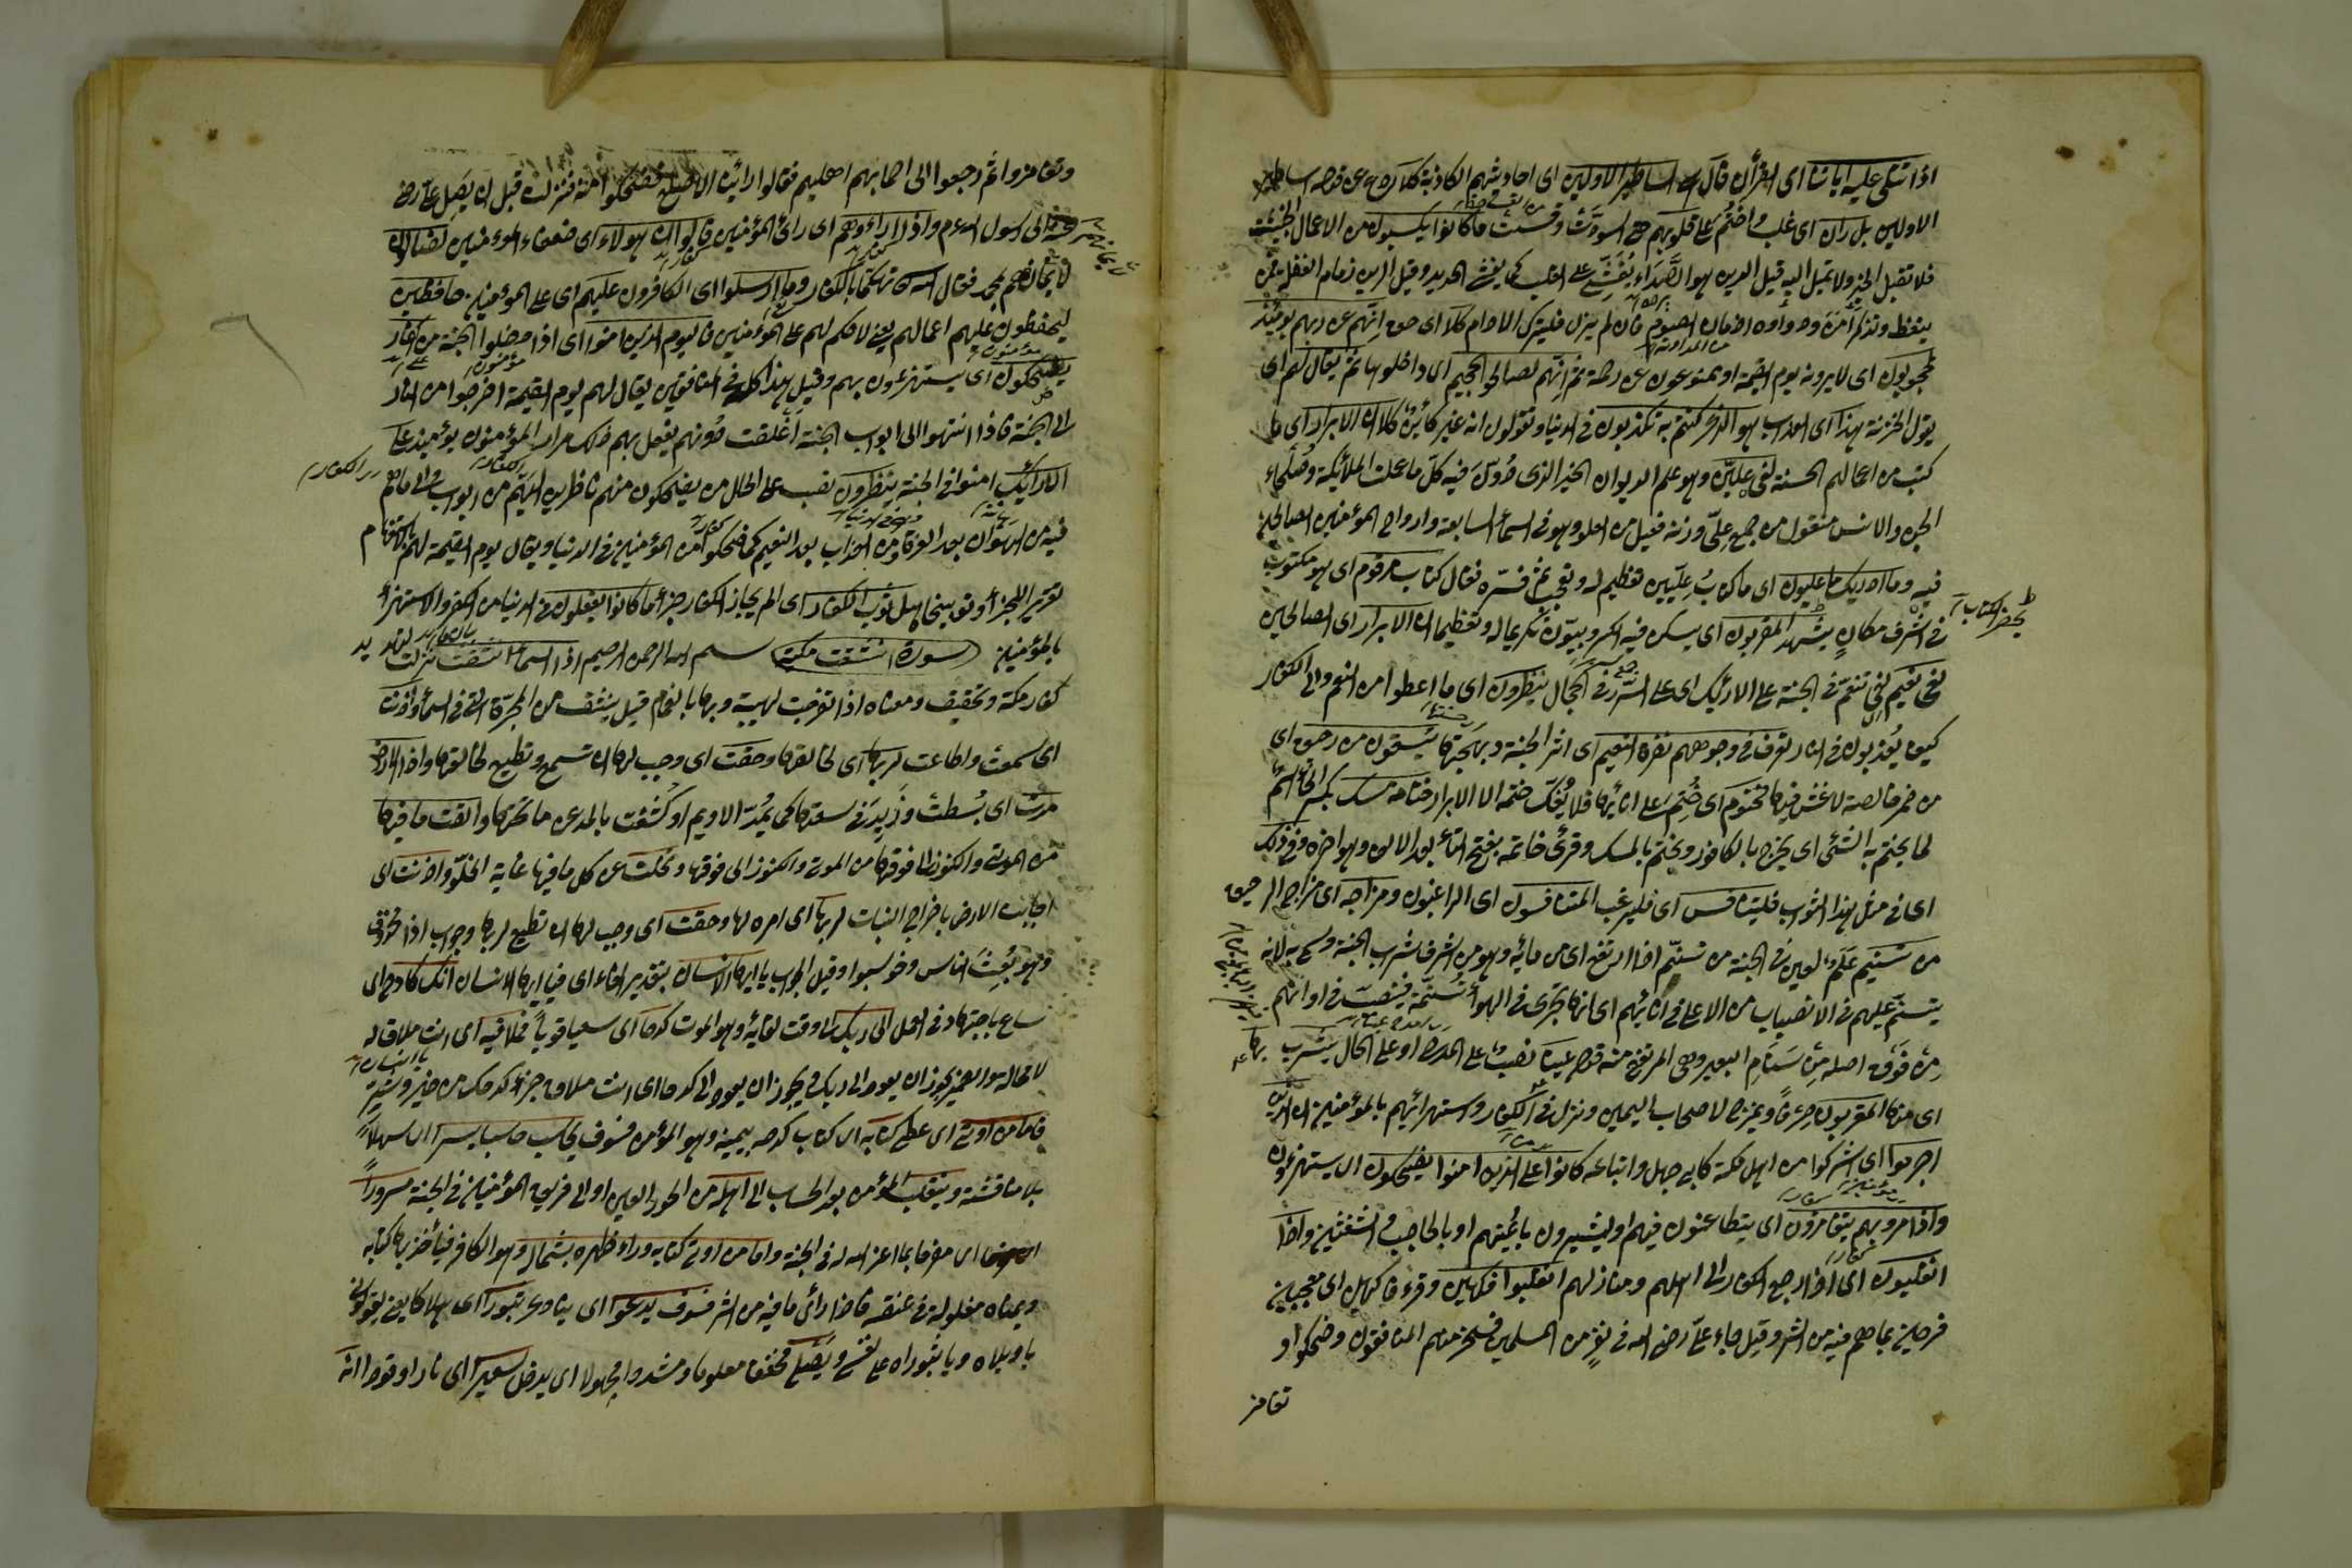 اذا تتلى عليه اياتنا اى القرآن قال اساطير الاولين اى احاديثهم الكاذبة كلا ردع عن قوله اساطير
الاولين بل ران اى غلب واختم على قلوبهم حتى اسودّت وقست ما كانوا يكسبون من الاعمال الخبيثة
فلا تقبل الخير ولا تميل اليه قيل الرين هو الصداء يغشى على القلب كما يغشى الحديد وقيل الرين
يتعظ وتذكر امره ودواوه ادمان الصوم فان لم يزل فليترك الادام كلا اى حق انهم عن ربهم يومئذ
لمحجوبون اى لا يرونه يوم القيمة او ممنوعون عن رحمته ثم انهم لصالوا الجحيم اى داخلوها ثم يقال لهم اى
يقول الخزنة هذا اى العذاب هو الذى كنتم به تكذبون فى الدنيا وتقولون انه غير كائن كلا ان الابرار اى ما
كتب من اعمالهم الحسنة لفى عليين وهو علم لديوان الخير الذى دوّن فيه كل ما عملت الملائكة وصلحاء
الجن والانس منقول من جمع علّى وزنه فعيل من العلو وهو فى السماء السابعة وارواح المؤمنين الصالحين
فيه وما ادريك ما عليون اى ما كتاب عليين تعظيم له وتعجيب ثم فسره فقال كتاب مرقوم اى هو مكتوب
فى اشرف مكان يشهد المقربون اى يسكن فيه الكروبيون تكريما له وتعظيما ان الابرار اى الصالحين
يحضر الكتاب
لفى نعيم لفى تنعم فى الجنة على الارائك اى على السرر فى الحجال ينظرون اى ما اعطوا من النعم والى الكفار
كيف يعذبون فى النار تعرف فى وجوههم نضرة النعيم اى اثر الجنة وبهجتها يسقون من رحيق اى
من خمر خالصة لا غش فيها مختوم اى ختم على انائها فلا يفكّ ختمه الا الابرار ختامه مسك بكسر الخاء اسم
لما يختم به الشئ اى يمزج بالكافور ويختم بالمسك وقرئ خاتمه بفتح التاء بعد الالف وهو اخره وفى ذلك
اى فى مثل هذا الثواب فليتنافس اى فليرغب المتنافسون اى الراغبون ومزاجه اى مزاج الرحيق
من تسنيم علم لعين فى الجنة من تسنّم اذا ارتفع اى من مائه وهو من اشرف شراب الجنة وسمى به لانه
يتسنّم عليهم فى الانصباب من الاعلى فى انائهم اى انها تجرى فى الهواء تسنمة فينصب فى اوانهم
من فوق اصله من سنام البعير وهى المرتفع منه قوله عينا نصب على المدح او على الحال يشرب بها
اى منها المقربون صرفا ويمزج لاصحاب اليمين ونزل فى الكفار واستهزائهم بالمؤمنين ان الذين
اجرموا اى اشركوا من اهل مكة كابى جهل واتباعه كانوا على الذين امنوا يضحكون اى يستهزءون
واذا مروا بهم يتغامزون اى يتطاعنون فيهم او يشيرون باعينهم او بالحاجب والشفتين واذا
انقلبوا اى اذا رجع الكفار الى اهلهم ومنازلهم انقلبوا فكهين وقرء فاكهين اى معجبين
فرحين بما هم فيه من الشر وقيل جاء على رضى الله فى نفر من المسلمين فسخر منهم المنافقون وضحكوا و
تغامز
وتغامزوا ثم رجعوا الى اصحابهم اهليهم فقالوا راينا الاصلع فضحكوا منه فنزلت قبل ان يصل على رضى
الى رسول الله عم واذا راوهم اى رأى المؤمنين قالوا ان هولاء اى ضعفاء المؤمنين لضالون
لايمانهم بمحمد فقال الله تهكما بالكفار وما ارسلوا اى الكافرون عليهم اى على المؤمنين حافظين
ليحفظون عليهم اعمالهم يعنى لا حكم لهم على المؤمنين فاليوم الذين امنوا اى اذا دخلوا الجنة من الكفار
يضحكون اى يستهزءون بهم وقيل هذا كله فى المنافقين يقال لهم يوم القيمة اخرجوا من النار
الى الجنة فاذا انتهوا الى ابواب الجنة اغلقت دونهم يفعل بهم ذلك مرارا المؤمنون يومئذ على
الارائك امنوا فى الجنة ينظرون نصب على الحال من يضحكون منهم ناظرين اليهم من ابواب والى ما هم
فيه من الهوان بعد العزة ومن العذاب بعد النعيم كما ضحكوا من المؤمنين فى الدنيا ويقال يوم القيمة لهم
تقريرا للجزاء وتوبيخا هل ثوب الكفار اى الم يجاز الكفار جزاء ما كانوا يفعلون فى الدنيا من الكفر والاستهزاء
بالمؤمنين سورة انشقت مكية بسم الله الرحمن الرحيم اذا السماء انشقت نزلت لتهديد
كفار مكة وتحقيق ومعناه اذا تفرجت لهيبة ربها بالغمام قيل ينشق من المجرة التى فى السماء واذنت
اى سمعت واطاعت لربها اى لخالقها وحقت اى وجب لها ان تسمع وتطيع لخالقها واذا الارض
مدت اى بسطت وزيدت سعتها كما يمدّ الاديم او كشفت بالمد عن ما تحتها والقت ما فيها
من الموتى والكنوز الى فوقها وتخلت عن كل ما فيها غاية الخلو واذنت اى
اجابت الارض باخراج النبات لربها اى امره لها وحقت اى وجب لها ان تطيع لربها وجواب اذا محذوف
وهو بعث الناس وحوسبوا وقيل الجواب يا ايها الانسان بتقدير الفاء اى فيا ايها الانسان انك كادح اى
ساع باجتهاد فى العمل الى ربك الى وقت لقائه وهو الموت كدحا اى سعيا قويا فملاقيه اى انت ملاق له
لا محالة والضمير يجوز ان يعود الى ربك ويجوز ان يعود الى كدحا اى انت ملاق جزاء كدحك من خير وشر
فاما من اوتى اى عطى كتابه اى كتاب كدحه بيمينه وهو المؤمن فسوف يحاسب حسابا يسيرا اى سهلا
بلا مناقشة وينقلب المؤمن بعد الحساب الى اهله من الحور العين او الى فريق المؤمنين فى الجنة مسرورا
اى فرحا بما اعز الله له فى الجنة واما من اوتى كتابه وراء ظهره بشماله وهو الكافر فيأخذ بها كتابه
ويمناه مغلولة فى عنقه فاذا رأى ما فيه من الشر فسوف يدعوا اى ينادى ثبورا اى هلاكا يعنى يقول
يا ويلاه ويا ثبوراه على نفسه ويصلى مخففا معلوما ومشددا مجهولا اى يدخل سعيرا اى نارا وقودا انه